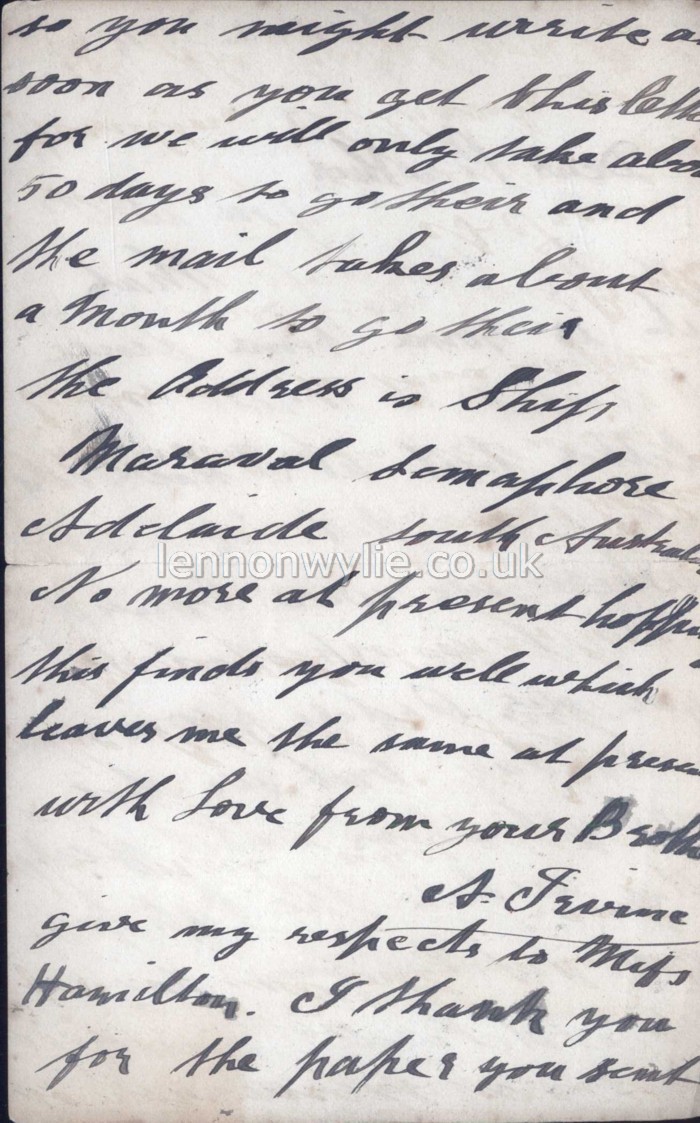 so you might write as
soon as you get this lette
for we will only take abou
50 days to go their and
the mail takes about
a Month to go their
the Address is Ship
Maraval Semaphore
Adelaide south Australi
lennonwylie.co.uk
No more at present hoppin
this finds you well which
leaves me the same at presen
with Love from your Brothe
A. Irvine
give my respects to Miss
Hamilton. I thank you
for the paper you sent